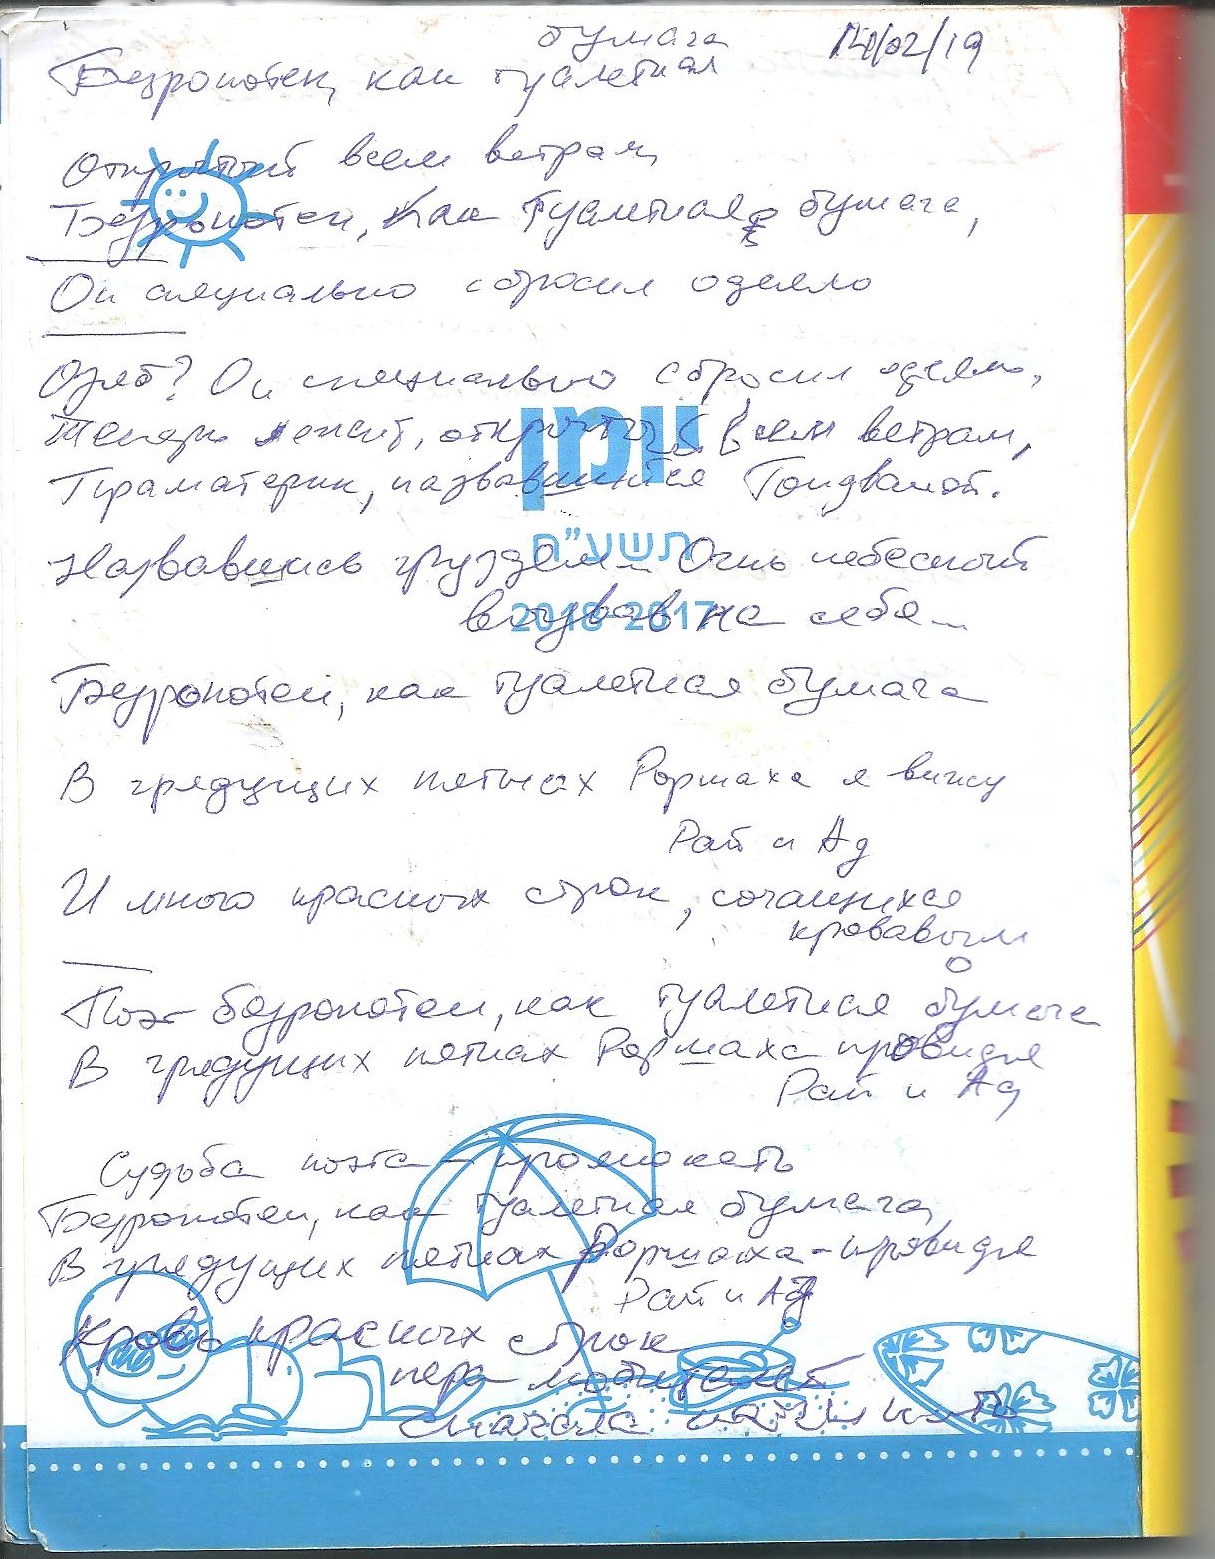 бумага 14/02/19
Безропотен, как туалетная
Открытый всем ветрам,
Безропотен, как туалетная бумага,
Он специально сбросил одеяло
Озяб? Он специально сбросил одеяло,
Теперь лежит, открытый всем ветрам,
Праматерик, назвавшийся Гондваной.
יומן
תשע"ח
Назвавшись груздем... Огнь небесный
2018-2017
вызвав на себя...
Безропотен, как туалетная бумага
В грядущих пятнах Роршаха я вижу
Рай и Ад
И много красных строк, сочащихся
кровавым
Поэт безропотен, как туалетная бумага
В грядущих пятнах Роршаха провидя
Рай и Ад
Судьба поэта - промокать
Безропотен, как туалетная бумага,
В грядущих пятнах Роршаха - провидя
Рай и Ад
Кровь красных строк
пера
сначала